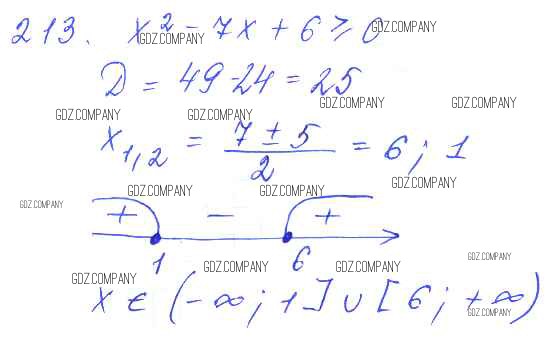 213. x² - 7x + 6 ≥ 0
GDZ.COMPANY GDZ.COMPANY
D = 49-24 = 25
GDZ.COMPANY GDZ.COMPANY GDZ.COMPANY GDZ.COMPANY
x₁,₂ = (7 ± 5)/2 = 6; 1
GDZ.COMPANY GDZ.COMPANY GDZ.COMPANY
GDZ.COMPANY
+ - +
1 6
GDZ.COMPANY GDZ.COMPANY GDZ.COMPANY GDZ.COMPANY
x ∈ (-∞; 1] ∪ [6; +∞)
GDZ.COMPANY